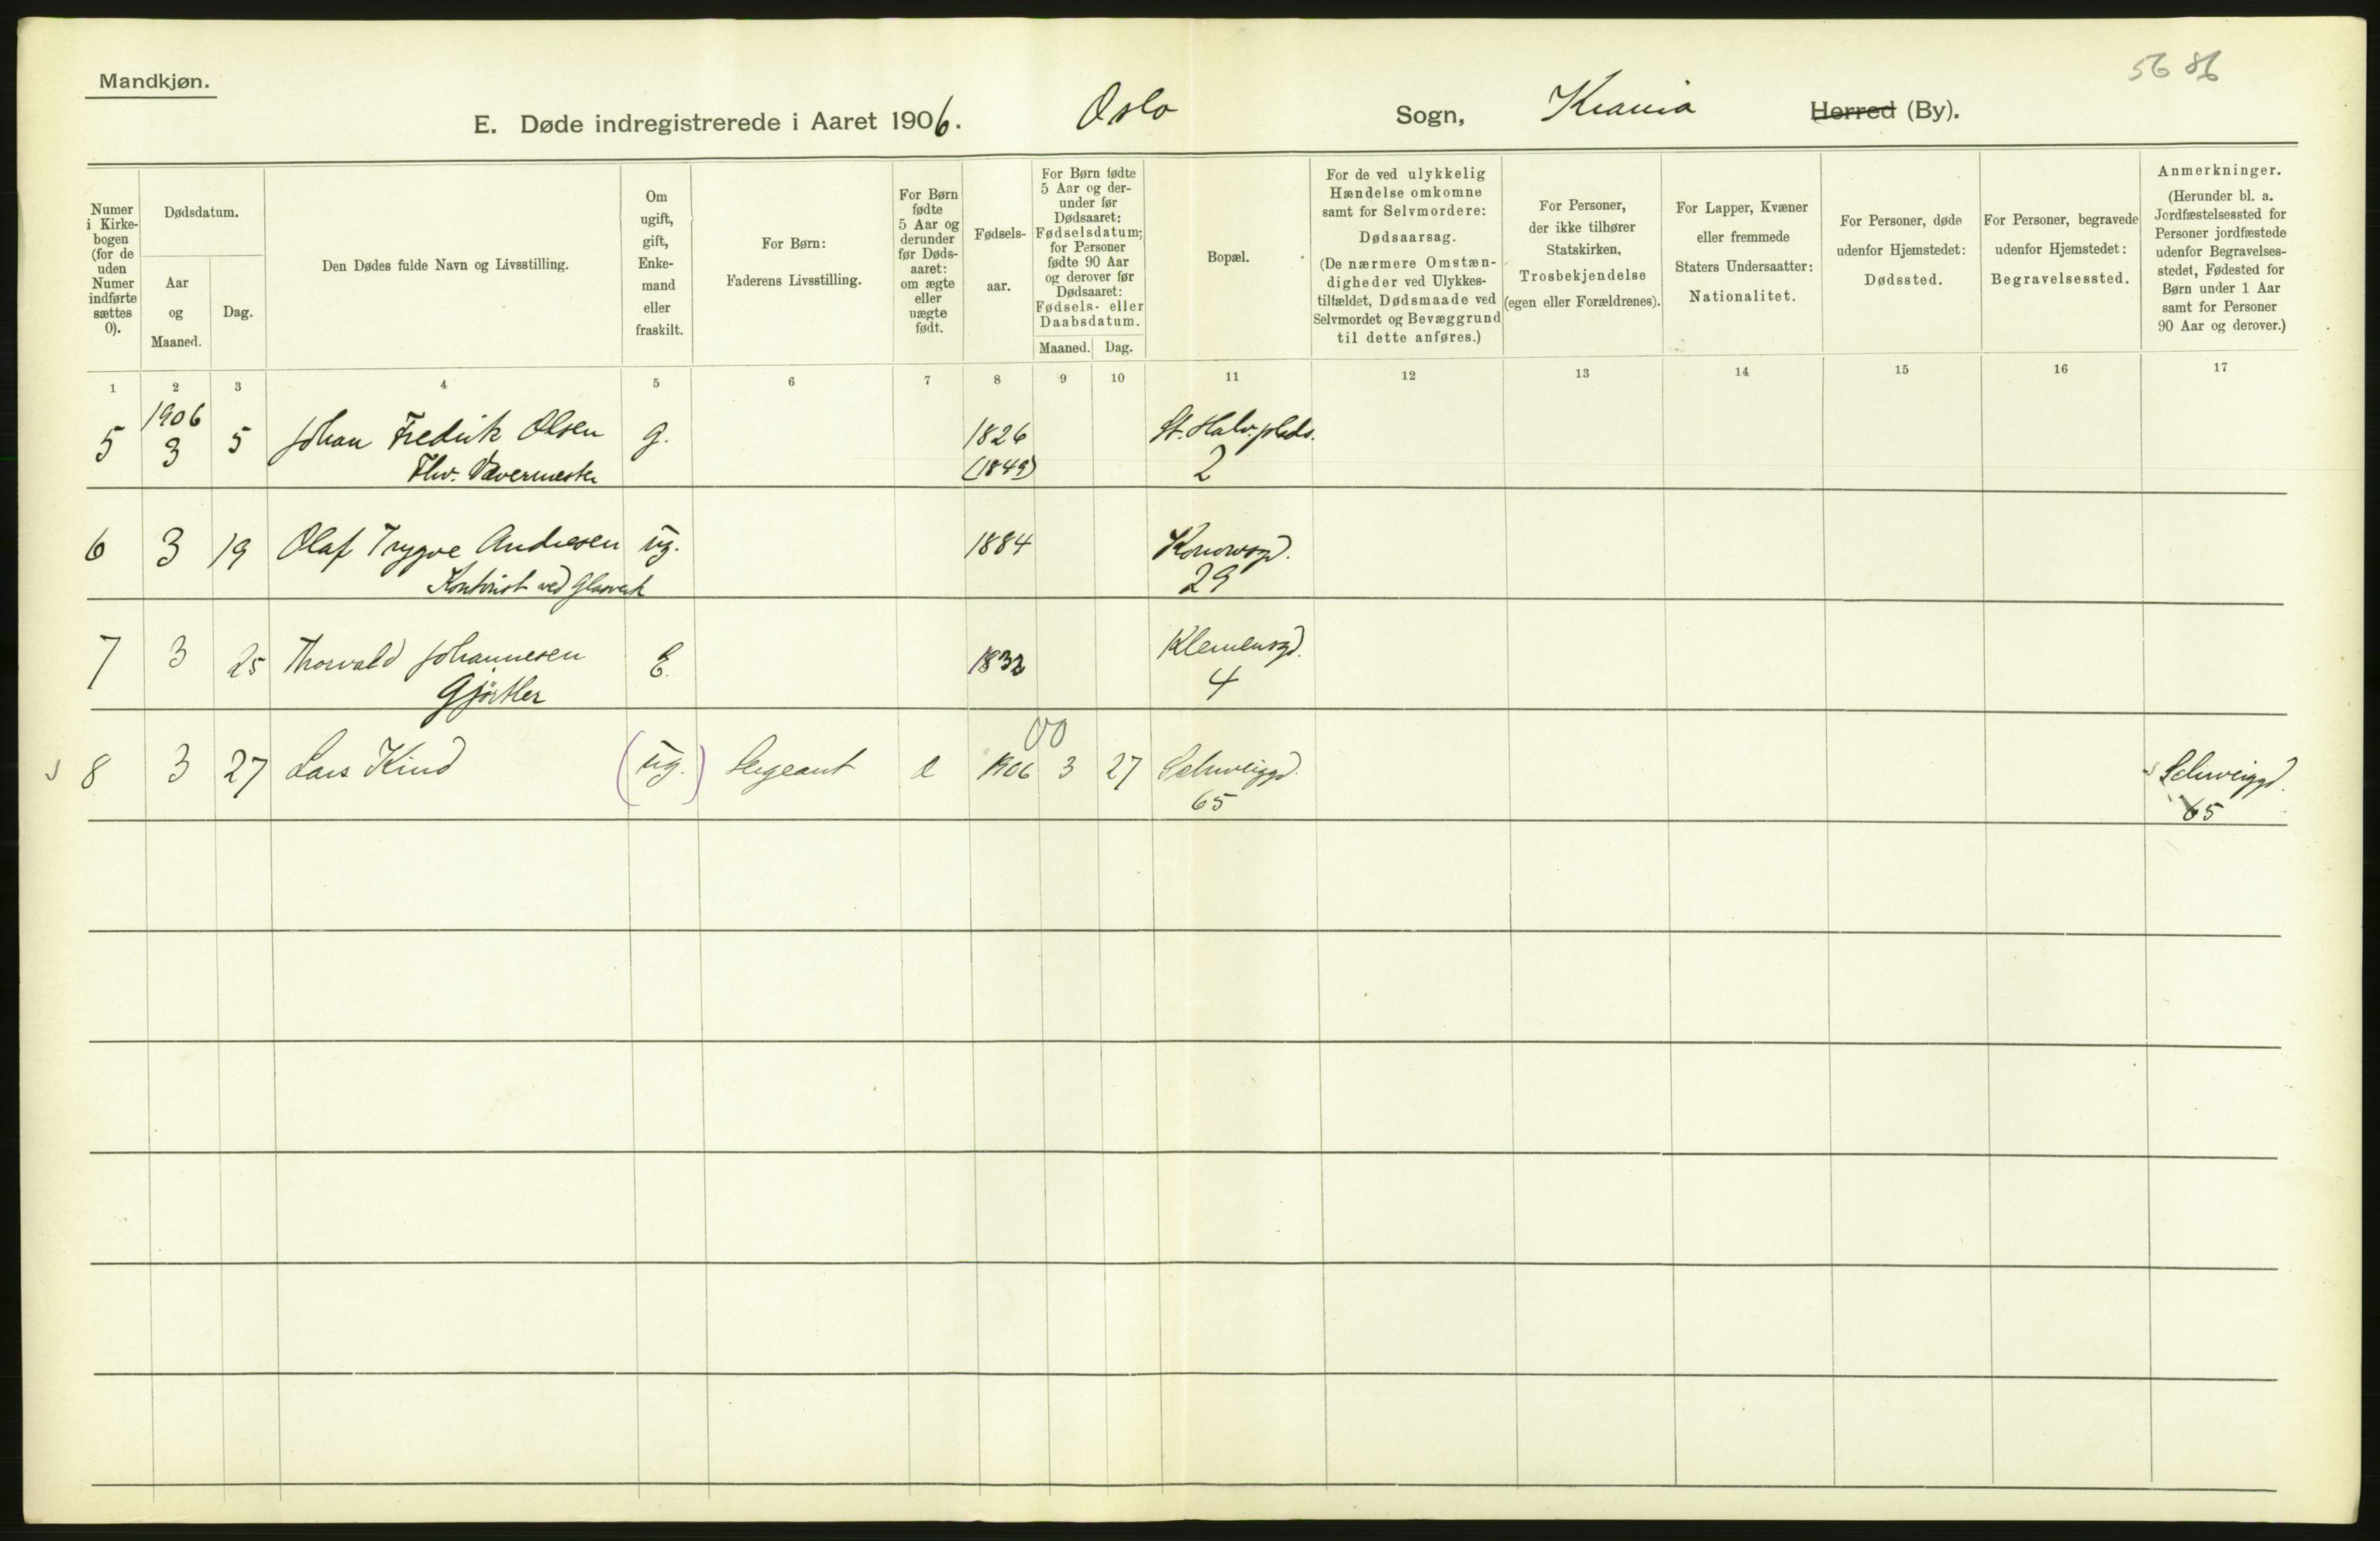 56 86
Mandkjøn.
E. Døde indregistrerede i Aaret 1906. Oslo Sogn, Krania Herred (By).
Numer
i Kirke-
bogen
(for de
uden
Numer
indførte
sættes
0).
Dødsdatum.
Aar
og
Maaned.
Dag.
Den Dødes fulde Navn og Livsstilling.
Om
ugift,
gift,
Enke-
mand
eller
fraskilt.
For Børn:
Faderens Livsstilling.
For Børn
fødte
5 Aar og
derunder
før Døds-
aaret:
om ægte
eller
uægte
født.
Fødsels-
aar.
For Børn fødte
5 Aar og der-
under før
Dødsaaret:
Fødselsdatum;
for Personer
fødte 90 Aar
og derover før
Dødsaaret:
Fødsels- eller
Daabsdatum.
Maaned. Dag.
Bopæl.
For de ved ulykkelig
Hændelse omkomne
samt for Selvmordere:
Dødsaarsag.
(De nærmere Omstæn-
digheder ved Ulykkes-
tilfældet, Dødsmaade ved
Selvmordet og Bevæggrund
til dette anføres.)
For Personer,
der ikke tilhører
Statskirken,
Trosbekjendelse
(egen eller Forældrenes).
For Lapper, Kvæner
eller fremmede
Staters Undersaatter:
Nationalitet.
For Personer, døde
udenfor Hjemstedet:
Dødssted.
For Personer, begravede
udenfor Hjemstedet:
Begravelsessted.
Anmerkninger.
(Herunder bl. a.
Jordfæstelsessted for
Personer jordfæstede
udenfor Begravelses-
stedet, Fødested for
Børn under 1 Aar
samt for Personer
90 Aar og derover.)
1 2 3 4 5 6 7 8 9 10 11 12 13 14 15 16 17
1906
5 3 5 Johan Fredrik Olsen g. 1826 St. Halv. plads.
Fhv. Vævermester (1849) 2
6 3 19 Olaf Trygve Andresen ug. 1884 Konowsgd.
Kontorist ved Glasverk 29
7 3 25 Thorvald Johannesen E. 1832 Klemensgd.
Gjörtler 4
00
8 3 27 Lars Kind (ug.) Sergeant 1906 3 27 Schweiggd. Schweiggd.
65 65